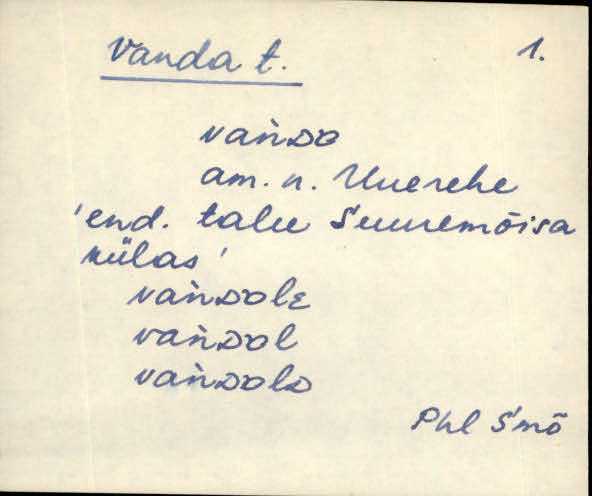 Vanda t. 1.
vaǹᴅo
am. n. Uuerehe
'end. talu Suuremõisa
külas'
vaǹᴅole
vaǹᴅol
vaǹᴅolᴅ
Phl Smõ